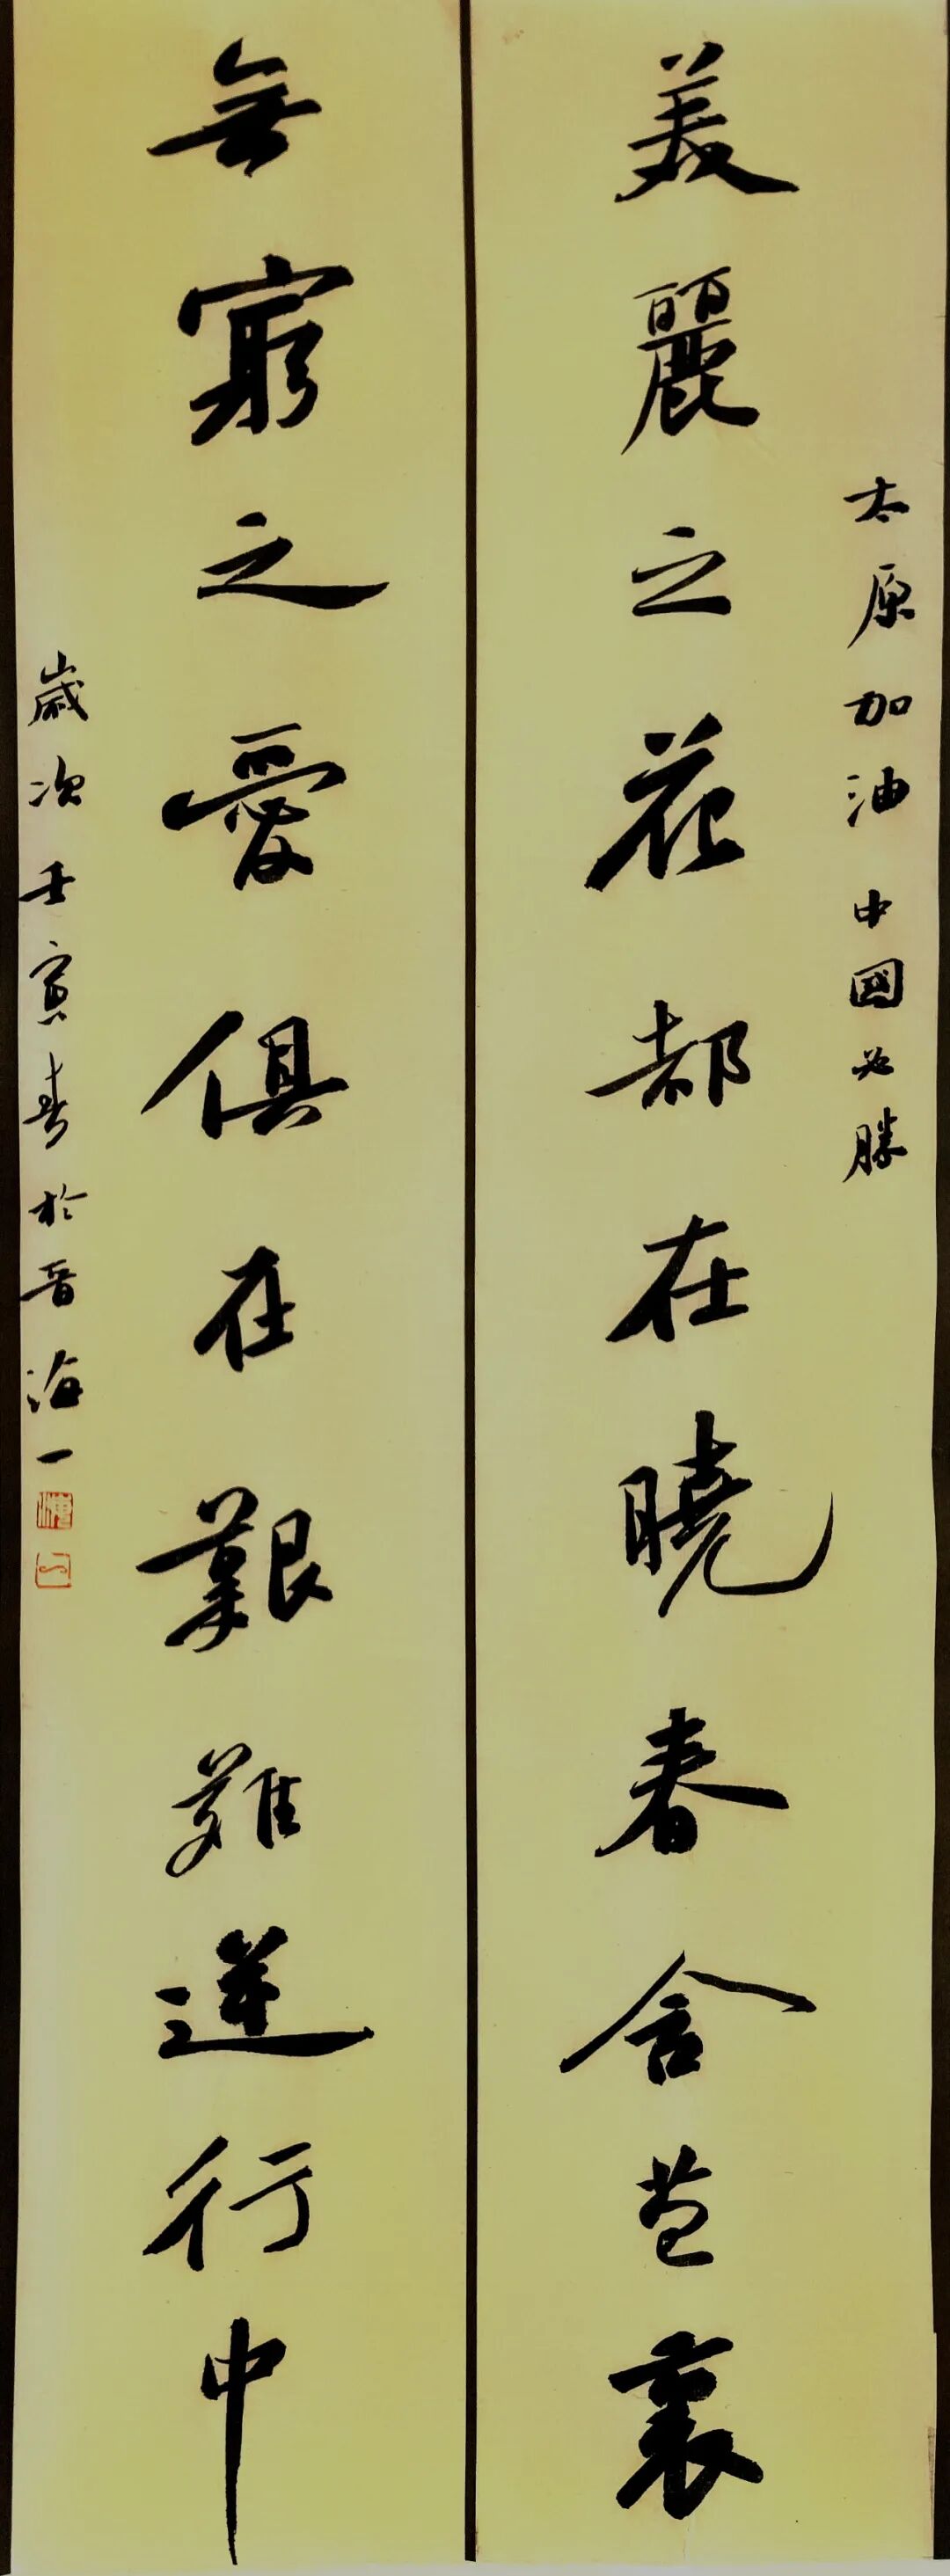 太原加油中國必勝
美麗之花都在曉春含苞裏
無窮之愛俱在艱難逆行中
歲次壬寅春於晉海一